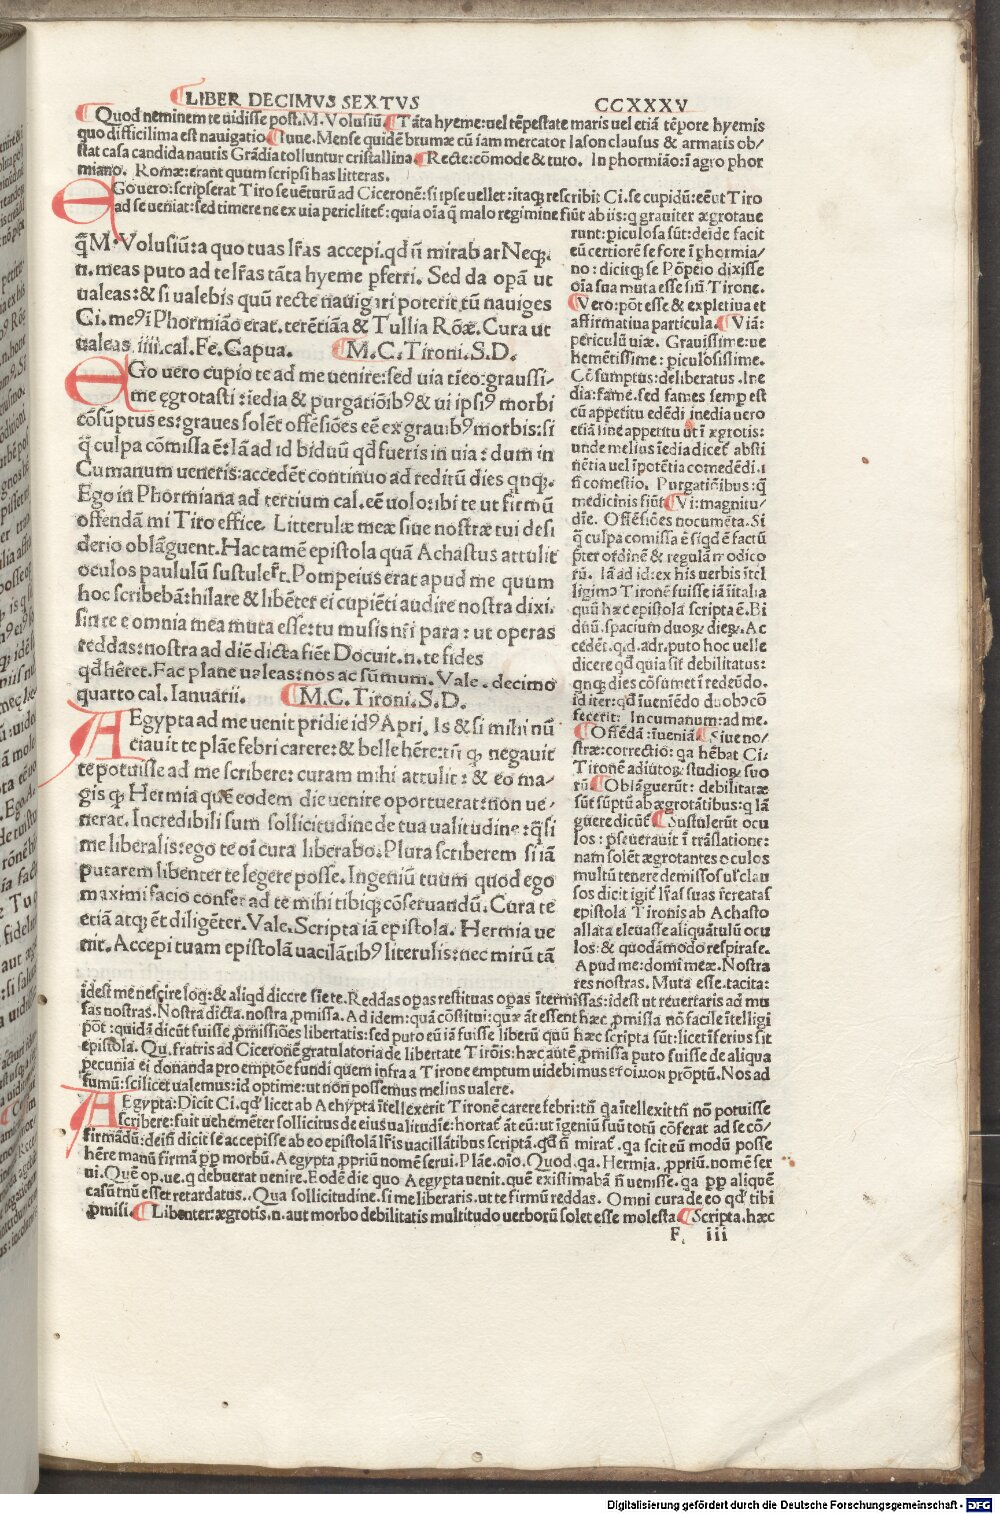 LIBER DECIMVS SEXTVS CCXXXV
Quod neminem te uidisse post.M.Volusiũ. Tãta hyeme:uel tẽpestate maris uel etiã tẽpore hyemis
quo difficilima est nauigatio. Iuue. Mense quidẽ brumæ cũ iam mercator Iason clausus & armatis ob/
stat casa candida nautis Grãdia tolluntur cristallina. Recte:cõmode & tuto. In phormião:ĩ agro phor
miano. Romæ:erant quum scripsi has litteras.
EGo uero:scripserat Tiro se uẽturũ ad Ciceronẽ:si ipse uellet:itaqꝫ rescribit Ci.se cupidũ:eẽ ut Tiro
ad se ueniat:sed timere ne ex uia periclitet᷑:quia oĩa q̃ malo regimine fiũt ab iis:q̃ grauiter ægrotaue
q̃ M.Volusiũ:a quo tuas lr̃as accepi.qd̃ ñ mirabar Neqꝫ.
n.meas puto ad te lr̃as tãta hyeme ꝑferri. Sed da opã ut
ualeas:& si ualebis quũ recte nauigari poterit tũ nauiges
Ci.meꝰ ĩ Phormião erat.terẽtiã & Tullia Rõæ.Cura ut
ualeas.iiii.cal.Fe.Capua. M.C.Tironi.S.D.
EGo uero cupio te ad me uenire:sed uia tĩeo:grauissi-
me ęgrotasti:iedia & purgatiõibꝰ & ui ipsiꝰ morbi
cõsũptus es:graues solẽt offẽsiões eẽ ex grauibꝰ morbis:si
q̃ culpa cõmissa ẽ:Iã ad id biduũ qd̃ fueris in uia:dum in
Cumanum ueneris:accedẽt continuo ad reditũ dies qnqꝫ.
Ego in Phormiana ad tertium cal.eẽ uolo:ibi te ut firmũ
offendã mi Tiro effice. Litterulæ meæ siue nostræ tui desi
derio oblãguent. Hac tamẽ epistola quã Achastus attulit
oculos paululũ sustulert̃.Pompeius erat apud me quum
hoc scribebã:hilare & libẽter ei cupiẽti audire nostra dixi.
sine te omnia mea muta esse:tu musis nr̃i para: ut operas
reddas:nostra ad diẽ dicta fiẽt Docuit.n.te fides
qd̃ hẽret.Fac plane ualeas:nos ac sũmum. Vale.decimo
quarto cal.Ianuarii. M.C.Tironi.S.D.
AEgypta ad me uenit pridie idꝰ Apri. Is & si mihi nũ
ciauit te plãe febri carere:& belle hẽre:tñ qꝫ negauit
te potuisse ad me scribere: curam mihi attulit: & eo ma-
gis qꝫ Hermia quẽ eodem die uenire oportuerat:non ue/
nerat. Incredibili sum sollicitudine de tua ualitudine:q̃ si
me liberalis:ego te oĩ cura liberabo.Plura scriberem si iã
putarem libenter te legere posse. Ingeniũ tuum quod ego
maximi facio confer ad te mihi tibiqꝫ cõseruandũ. Cura te
etiã atqꝫ ẽt diligẽter.Vale.Scripta iã epistola. Hermia ue
nit. Accepi tuam epistolã uacilãtibꝰ literulis:nec mirũ tã
runt: piculosa sũt:deĩde facit
eũ certiorẽ se fore ĩ phormia/
no:dicitqꝫ se Põpeio dixisse
oĩa sua muta esse siñ Tirone.
Vero:põt esse & expletiua et
affirmatiua particula. Viã:
periculũ uiæ. Grauissime:ue
hemẽtissime:piculosissime.
Cõsumptus:deliberatus.Ine
dia:fame.sed fames semp est
cũ appetitu edẽdi inedia uero
etiã sine appetitu ut ĩ ægrotis:
unde melius iẽdia dicet᷑ absti
nẽtia uel ĩpotẽtia comedẽdi.i
fi comestio. Purgatiõibus:q̃
medicinis fiũt. Vi:magnitu/
dĩe. Offẽsiões nocumẽta. Si
q̃ culpa comissa ẽ siqd ẽ factũ
p̃ter ordinẽ & regulãm odico
rũ. Iã ad id:ex his uerbis ĩtel
ligimꝰ Tironẽ fuisse iã ĩ italia
quũ hæc epistola scripta ẽ.Bi
duũ.spacium duoꝜ dieꝜ.Ac
cedẽt.q.d.adr.puto hoc uelle
dicere qd̃ quia sit debilitatus:
qnqꝫ dies cõsumet ĩ redeũdo.
id iter:qd̃ ĩueniẽdo duobꝰ cõ
fecerit: Incumanum:ad me.
Offẽdã:ĩueniã. Siue no/
stræ:correctio:qa hẽbat Ci.
Tironẽ adiutoꝜ studioꝜ suo
rũ. Oblãguerũt:debilitatæ
sũt sũptũ ab ægrotãtibus:q lã
guere dicũt᷑. Sustulerũt ocu
los:pseuerauit ĩ trãslatione:
nam solẽt ægrotantes oculos
multũ tenere demissos uł clau
sos dicit igit᷑ lr̃as suas r̃creatas
epistola Tironis ab Achasto
allata eleuasse aliquãtulũ ocu
los:& quodãmodo respirasse.
Apud me:domĩ meæ.Nostra
res nostras. Muta esse.tacita:
ĩdest me nescire loq̃:& aliqd diccre siẽ te. Reddas opas restituas opas ĩtermissas:idest ut reuertaris ad mu
sas nostras. Nostra dicta.nostra ꝓmissa. Ad idem:quã cõstitui:quæ ãt essent hæc ꝓmissa nõ facile ĩtelligi
põt:quidã dicũt fuisse ꝓmissiões libertatis:sed puto eũ iã fuisse liberũ quũ hæc scripta sũt:licet ĩferius sit
epistola. Qu.fratris ad Ciceronẽ gratulatoria de libertate Tirõis:hæc autẽ ꝓmissa puto fuisse de aliqua
pecunia ei donanda pro emptõe fundi quem infra a Tirone emptum uidebimus ετοιμον prõptũ. Nos ad
sumũ:scilicet ualemus:id optime:ut non possemus melius ualere.
AEgypta:Dicit Ci.qd̃ licet ab Aehypta ĩtellexerit Tironẽ carere febri:tñ qa ĩtellexit tñ nõ potuisse
scribere:fuit uehemẽter sollicitus de eius ualitudĩe:hortat᷑ ãt eũ:ut ĩgeniũ suũ totũ cõferat ad se cõ/
firmãdũ:deĩñ dicit se accepisse ab eo epistolã lr̃is uacillãtibus scriptã.qd̃ ñ mirat᷑ qa scit eũ modũ posse
hẽre manũ firmã pp morbũ. Aegypta ꝓpriũ nomẽ serui.Plãe.oĩo.Quod.qa.Hermia.ꝓpriũ.nomẽ ser
ui.Quẽ op.ue.q debuerat uenire.Eodẽ die quo Aegypta uenit.quẽ existimabã ñ uenisse.qa pp aliquẽ
casũ tnũ esset retardatus. Qua sollicitudine.si me liberaris.ut te firmũ reddas. Omni cura de eo qd̃ tibi
ꝓmisi. Libenter:ægrotis.n.aut morbo debilitatis multitudo uerborũ solet esse molesta Scripta.hæc
F iii
Digitalisierung gefördert durch die Deutsche Forschungsgemeinschaft - DFG